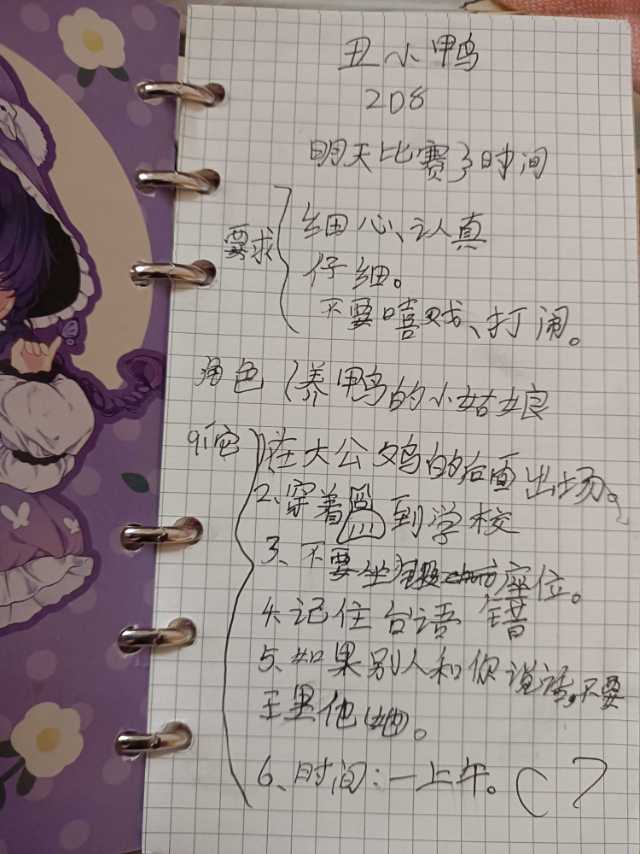 丑小鸭
208
明天比赛了时间
要求
细心、认真
仔细。
不要嘻戏、打闹。
角色 (养鸭的小姑娘
1、在大公鸡的后面出场。
2、穿着 到学校
3、不要坐 座位。
错
4、记住台语
5、如果别人和你说话,不要
王里他(她)。
6、时间:一上午。( )